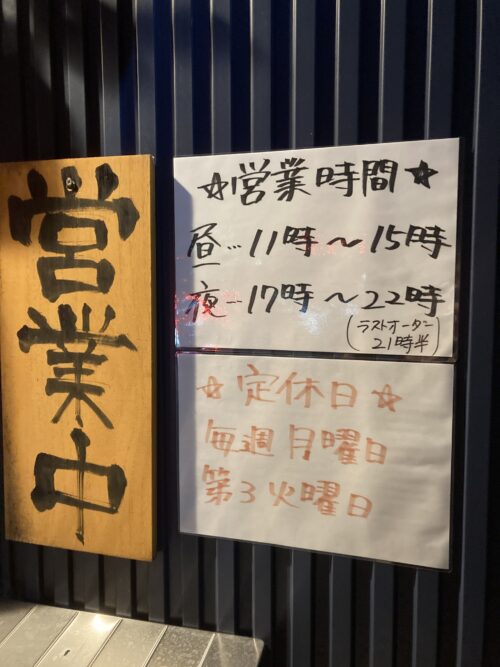 営業中
☆営業時間☆
昼…11時〜15時
夜…17時〜22時
(ラストオーダー
21時半)
☆定休日☆
毎週月曜日
第3火曜日